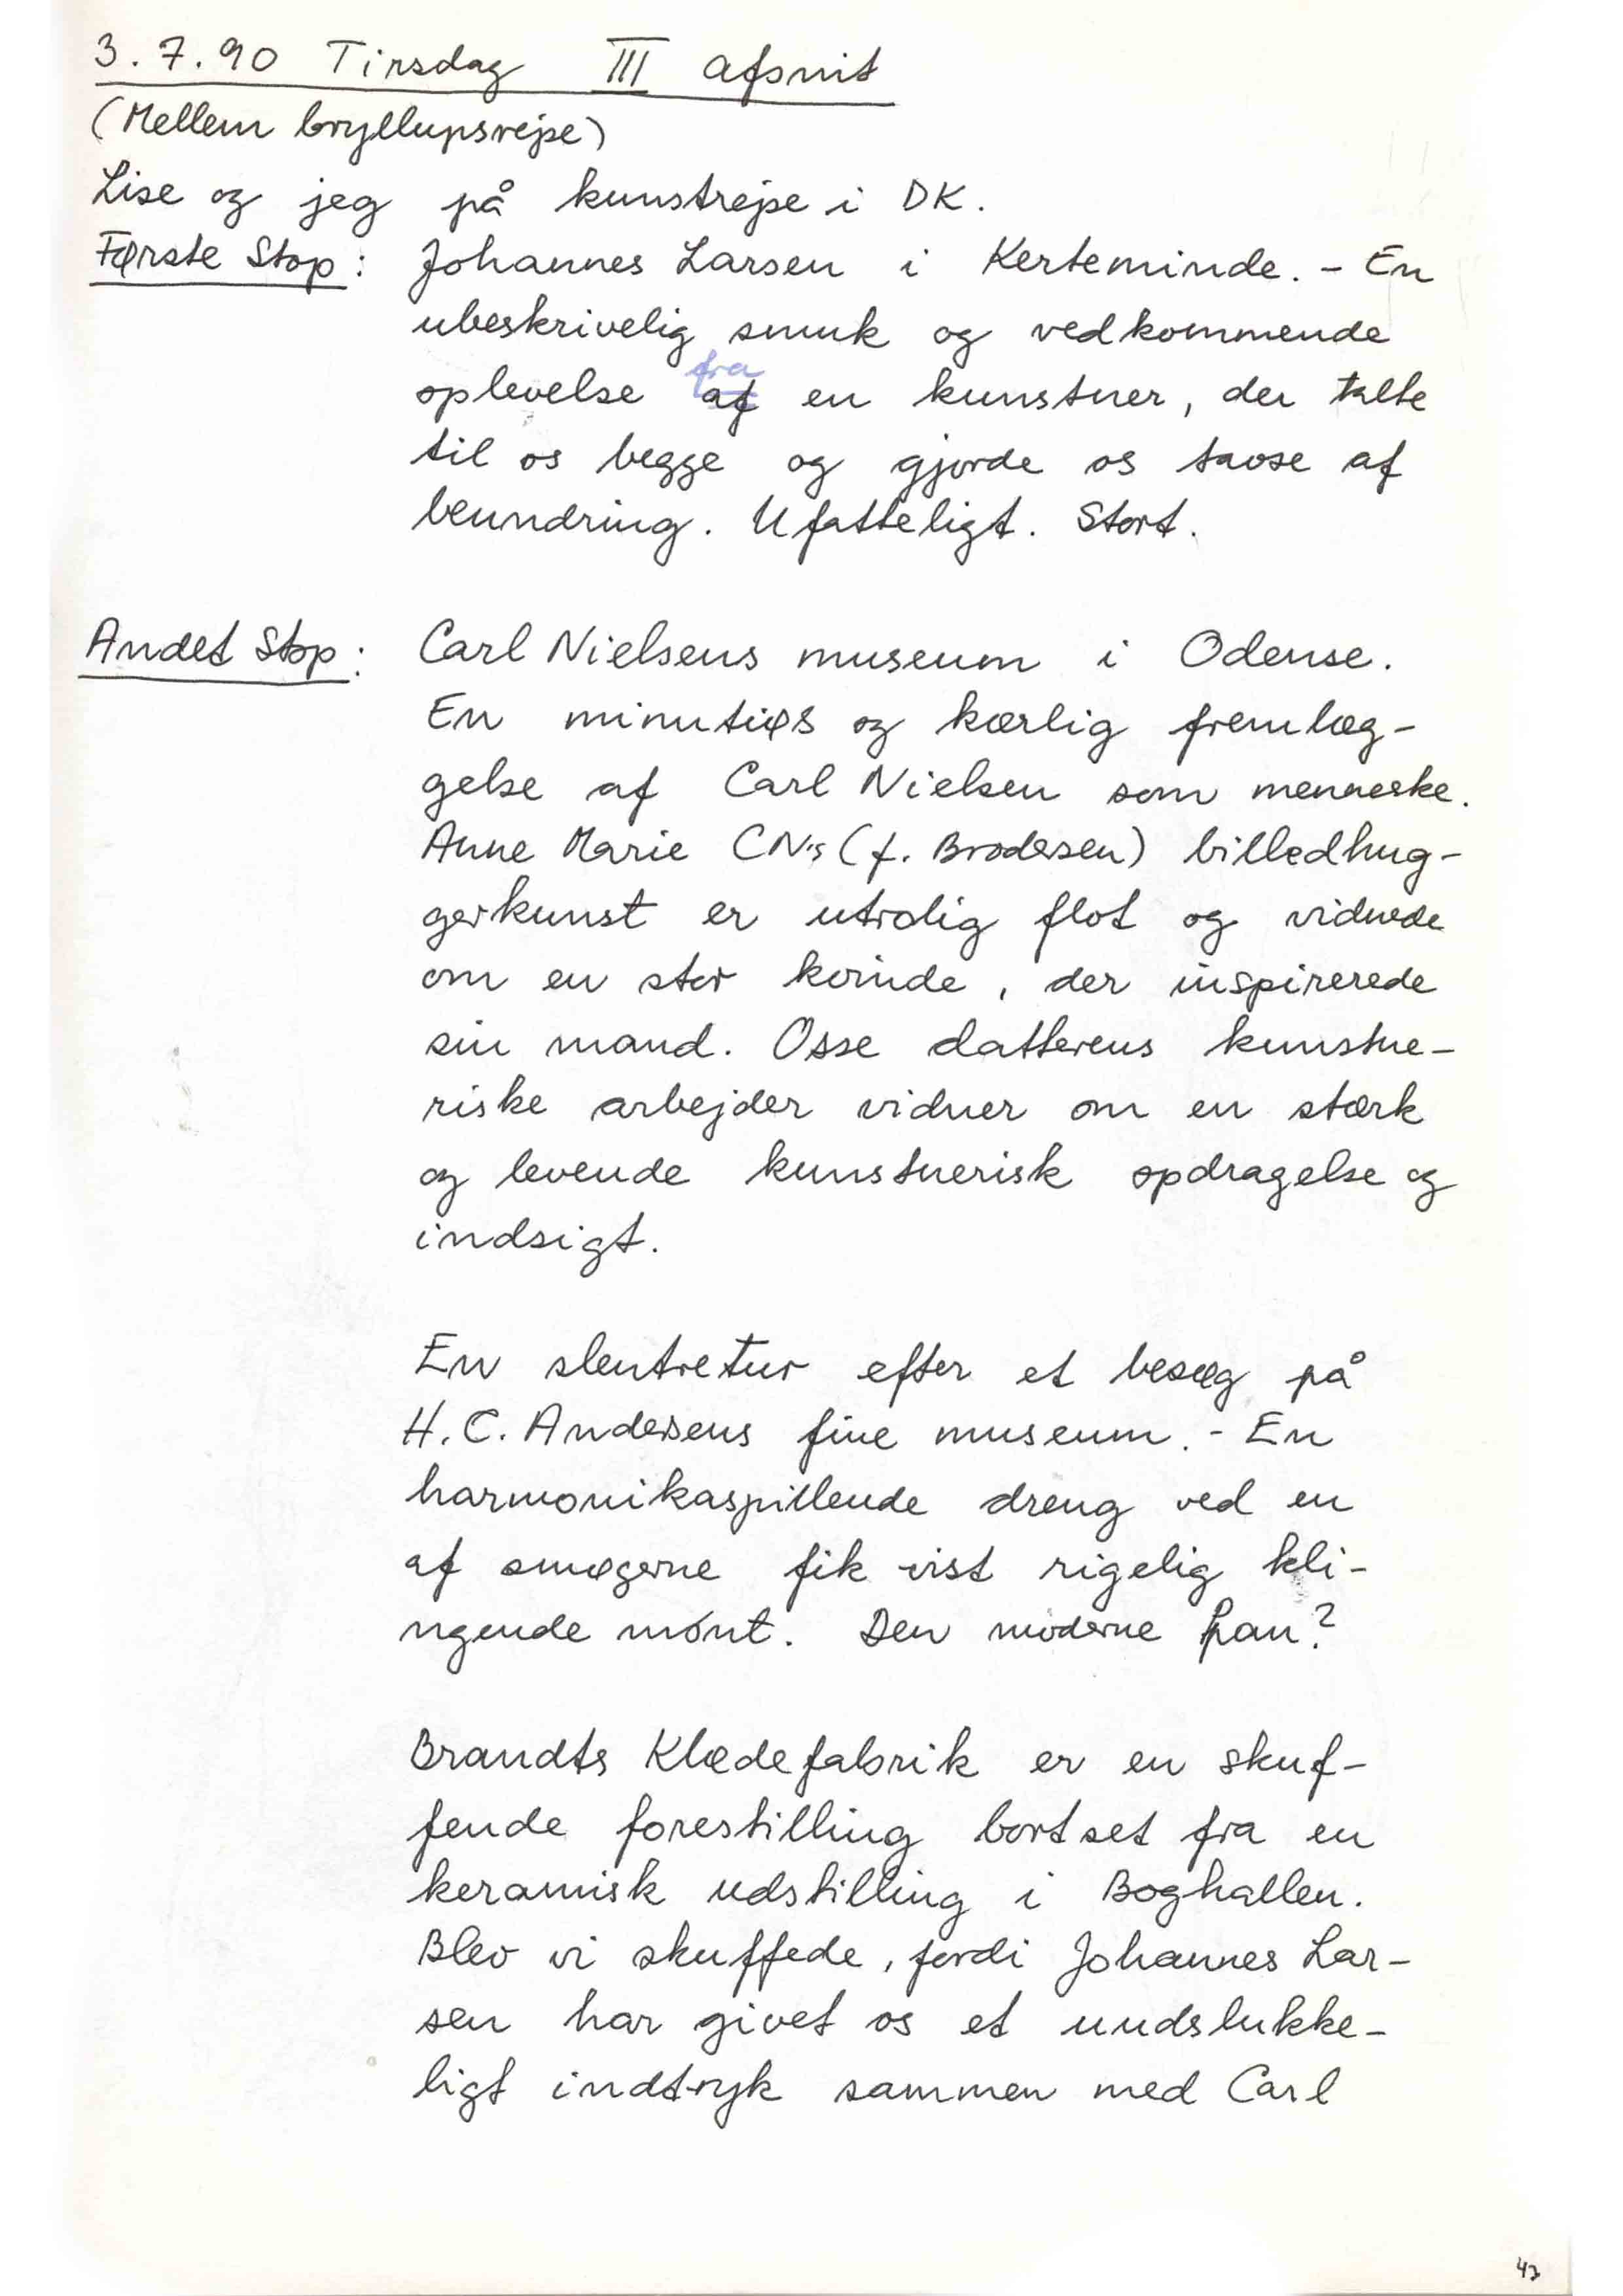 3.7.90 Tirsdag III afsnit
(Mellem bryllupsrejse)
Lise og jeg på kunstrejse i DK.
Første Stop: Johannes Larsen i Kerteminde. - En
ubeskrivelig smuk og vedkommende
fra
oplevelse af en kunstner, der talte
til os begge og gjorde os tavse af
beundring. Ufatteligt. Stort.
Andet Stop: Carl Nielsens museum i Odense.
En minutiøs og kærlig fremlæg-
gelse af Carl Nielsen som menneske.
Anne Marie CN's (f. Brodersen) billedhug-
gerkunst er utrolig flot og vidnede
om en stor kvinde, der inspirerede
sin mand. Osse datterens kunstne-
riske arbejder vidner om en stærk
og levende kunstnerisk opdragelse og
indsigt.
En slentretur efter et besøg på
H.C. Andersens fine museum. - En
harmonikaspillende dreng ved en
af smøgerne fik vist rigelig kli-
ngende mønt. Den moderne Pan?
Brandts Klædefabrik er en skuf-
fende forestilling bortset fra en
keramisk udstilling i Boghallen.
Blev vi skuffede, fordi Johannes Lar-
sen har givet os et uudslukke-
ligt indtryk sammen med Carl